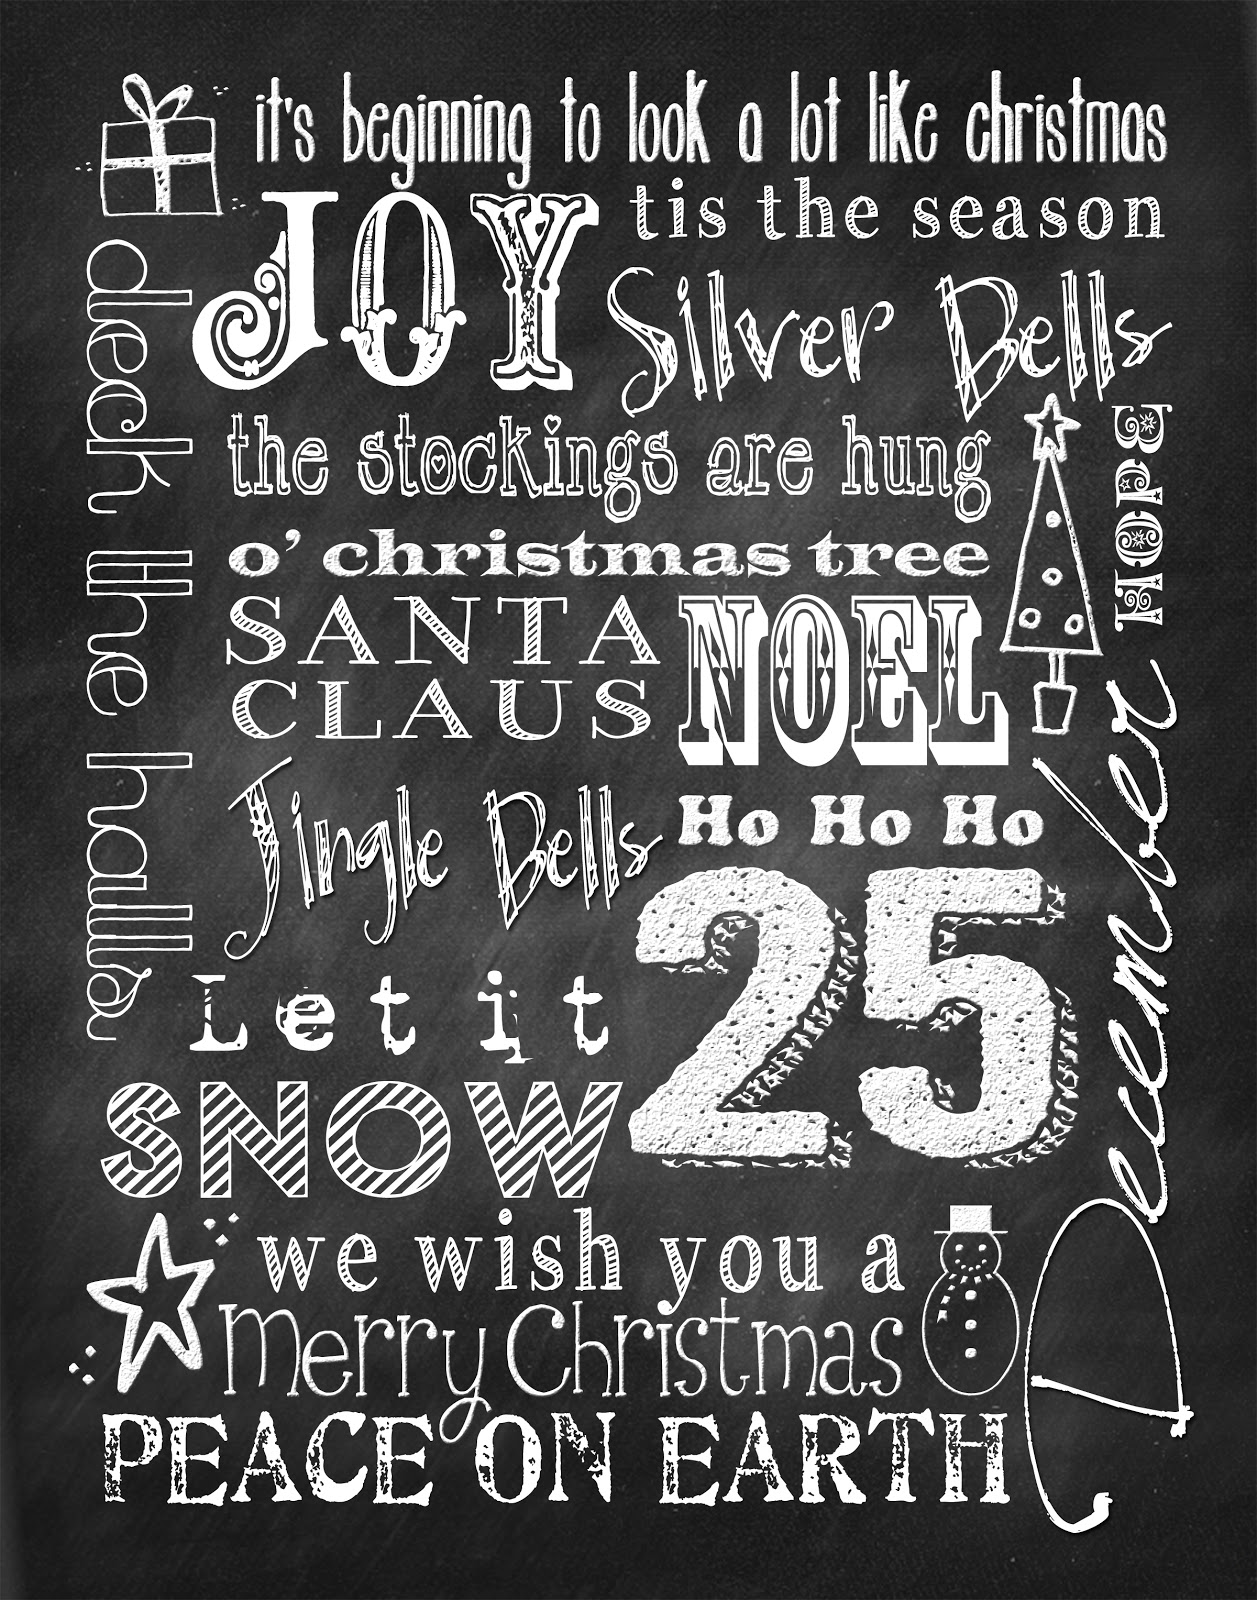 it's beginning to look a lot like christmas
JOY
tis the season
Silver Bells
deck the halls
the stockings are hung
HOPE
o' christmas tree
SANTA
CLAUS
NOEL
Jingle Bells
Ho Ho Ho
December
25
Let it
SNOW
we wish you a
Merry Christmas
PEACE ON EARTH